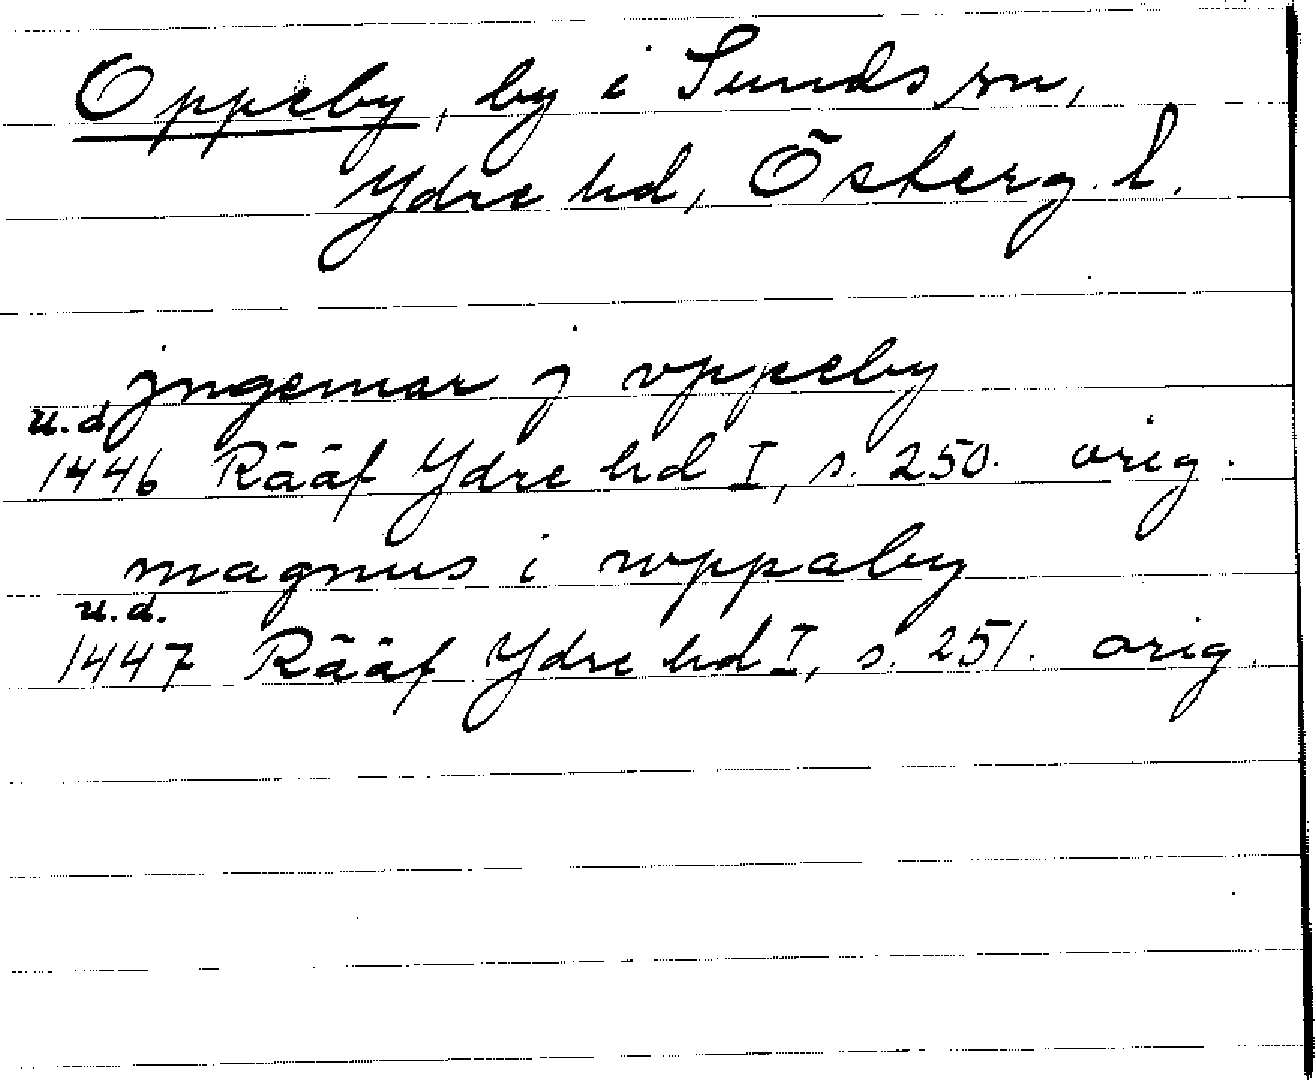 Oppeby, by i Sunds sn,
Ydre hd, Österg. l.
jngemar j vppeby
u.d.
1446 Rääf Ydre hd I, s. 250. orig.
magnus i wppaby
u.d.
1447 Rääf Ydre hd I, s. 251. orig.